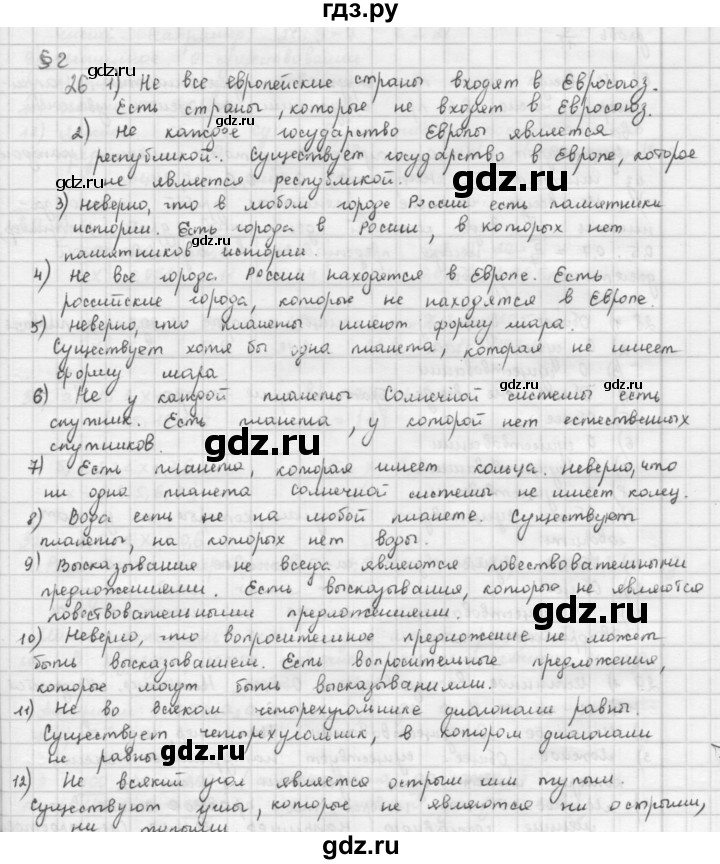 гдз.ру
§2
26 1) Не все европейские страны входят в Евросоюз.
Есть страны, которые не входят в Евросоюз.
2) Не каждое государство Европы является
республикой. Существует государство в Европе, которое
не является республикой.
3) Неверно, что в любом городе России есть памятники
истории. Есть города в России, в которых нет
памятников истории.
4) Не все города России находятся в Европе. Есть
российские города, которые не находятся в Европе.
5) Неверно, что планеты имеют форму шара.
Существует хотя бы одна планета, которая не имеет
форму шара
6) Не у каждой планеты Солнечной системы есть
спутник. Есть планета, у которой нет естественных
спутников.
7) Есть планета, которая имеет кольца. Неверно, что
ни одна планета Солнечной системы не имеет колец.
8) Вода есть не на любой планете. Существуют
планеты, на которых нет воды.
9) Высказывание не всегда являются повествовательными
предложениями. Есть высказывания, которые не являются
повествовательными предложениями.
10) Неверно, что вопросительное предложение не может
быть высказыванием. Есть вопросительные предложения,
которые могут быть высказываниями.
11) Не во всяком четырехугольнике диагонали равны.
Существует четырехугольник, в котором диагонали
не равны
12) Не всякий угол является острым или тупым.
Существуют углы, которые не являются ни острыми,
ни тупыми
gdz.ru
gdz.ru
gdz.ru
gdz.ru
gdz.ru
gdz.ru
gdz.ru
gdz.ru
gdz.ru
gdz.ru